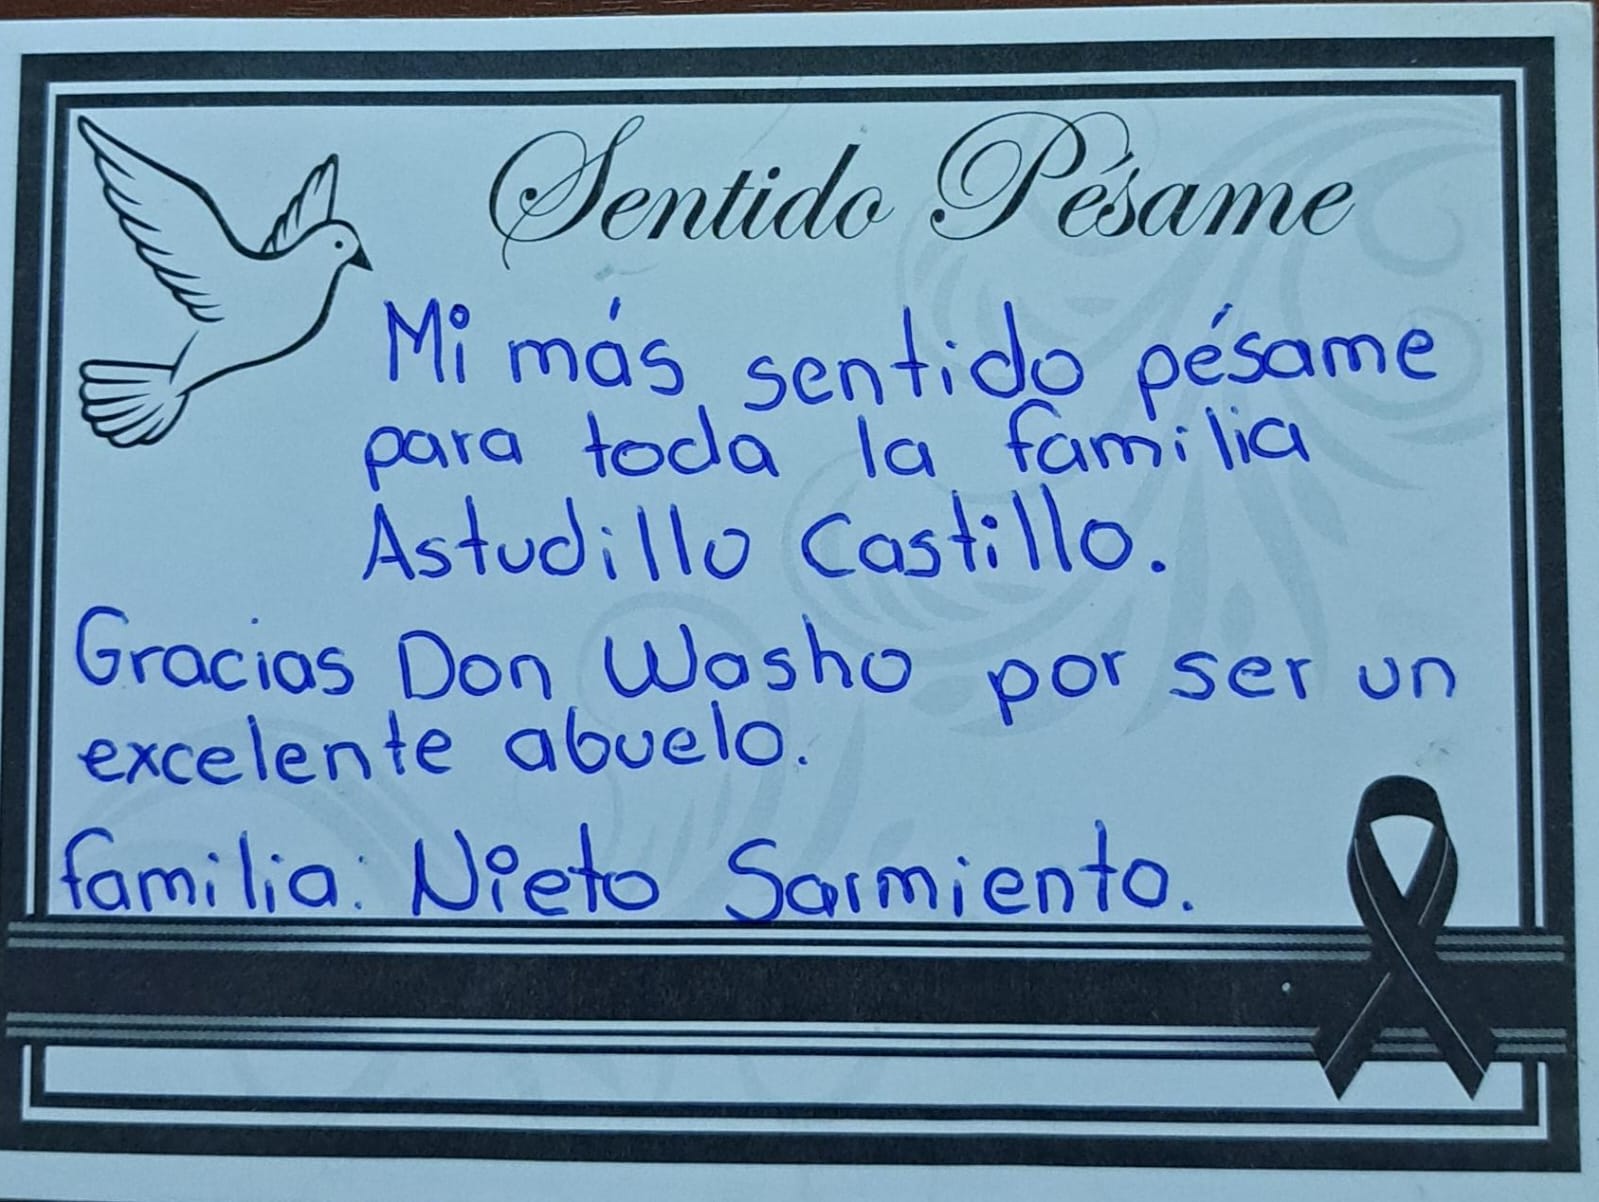 Sentido Pésame
Mi más sentido pésame
para toda la familia
Astudillo Castillo.
Gracias Don Washo por ser un
excelente abuelo.
familia: Nieto Sarmiento.